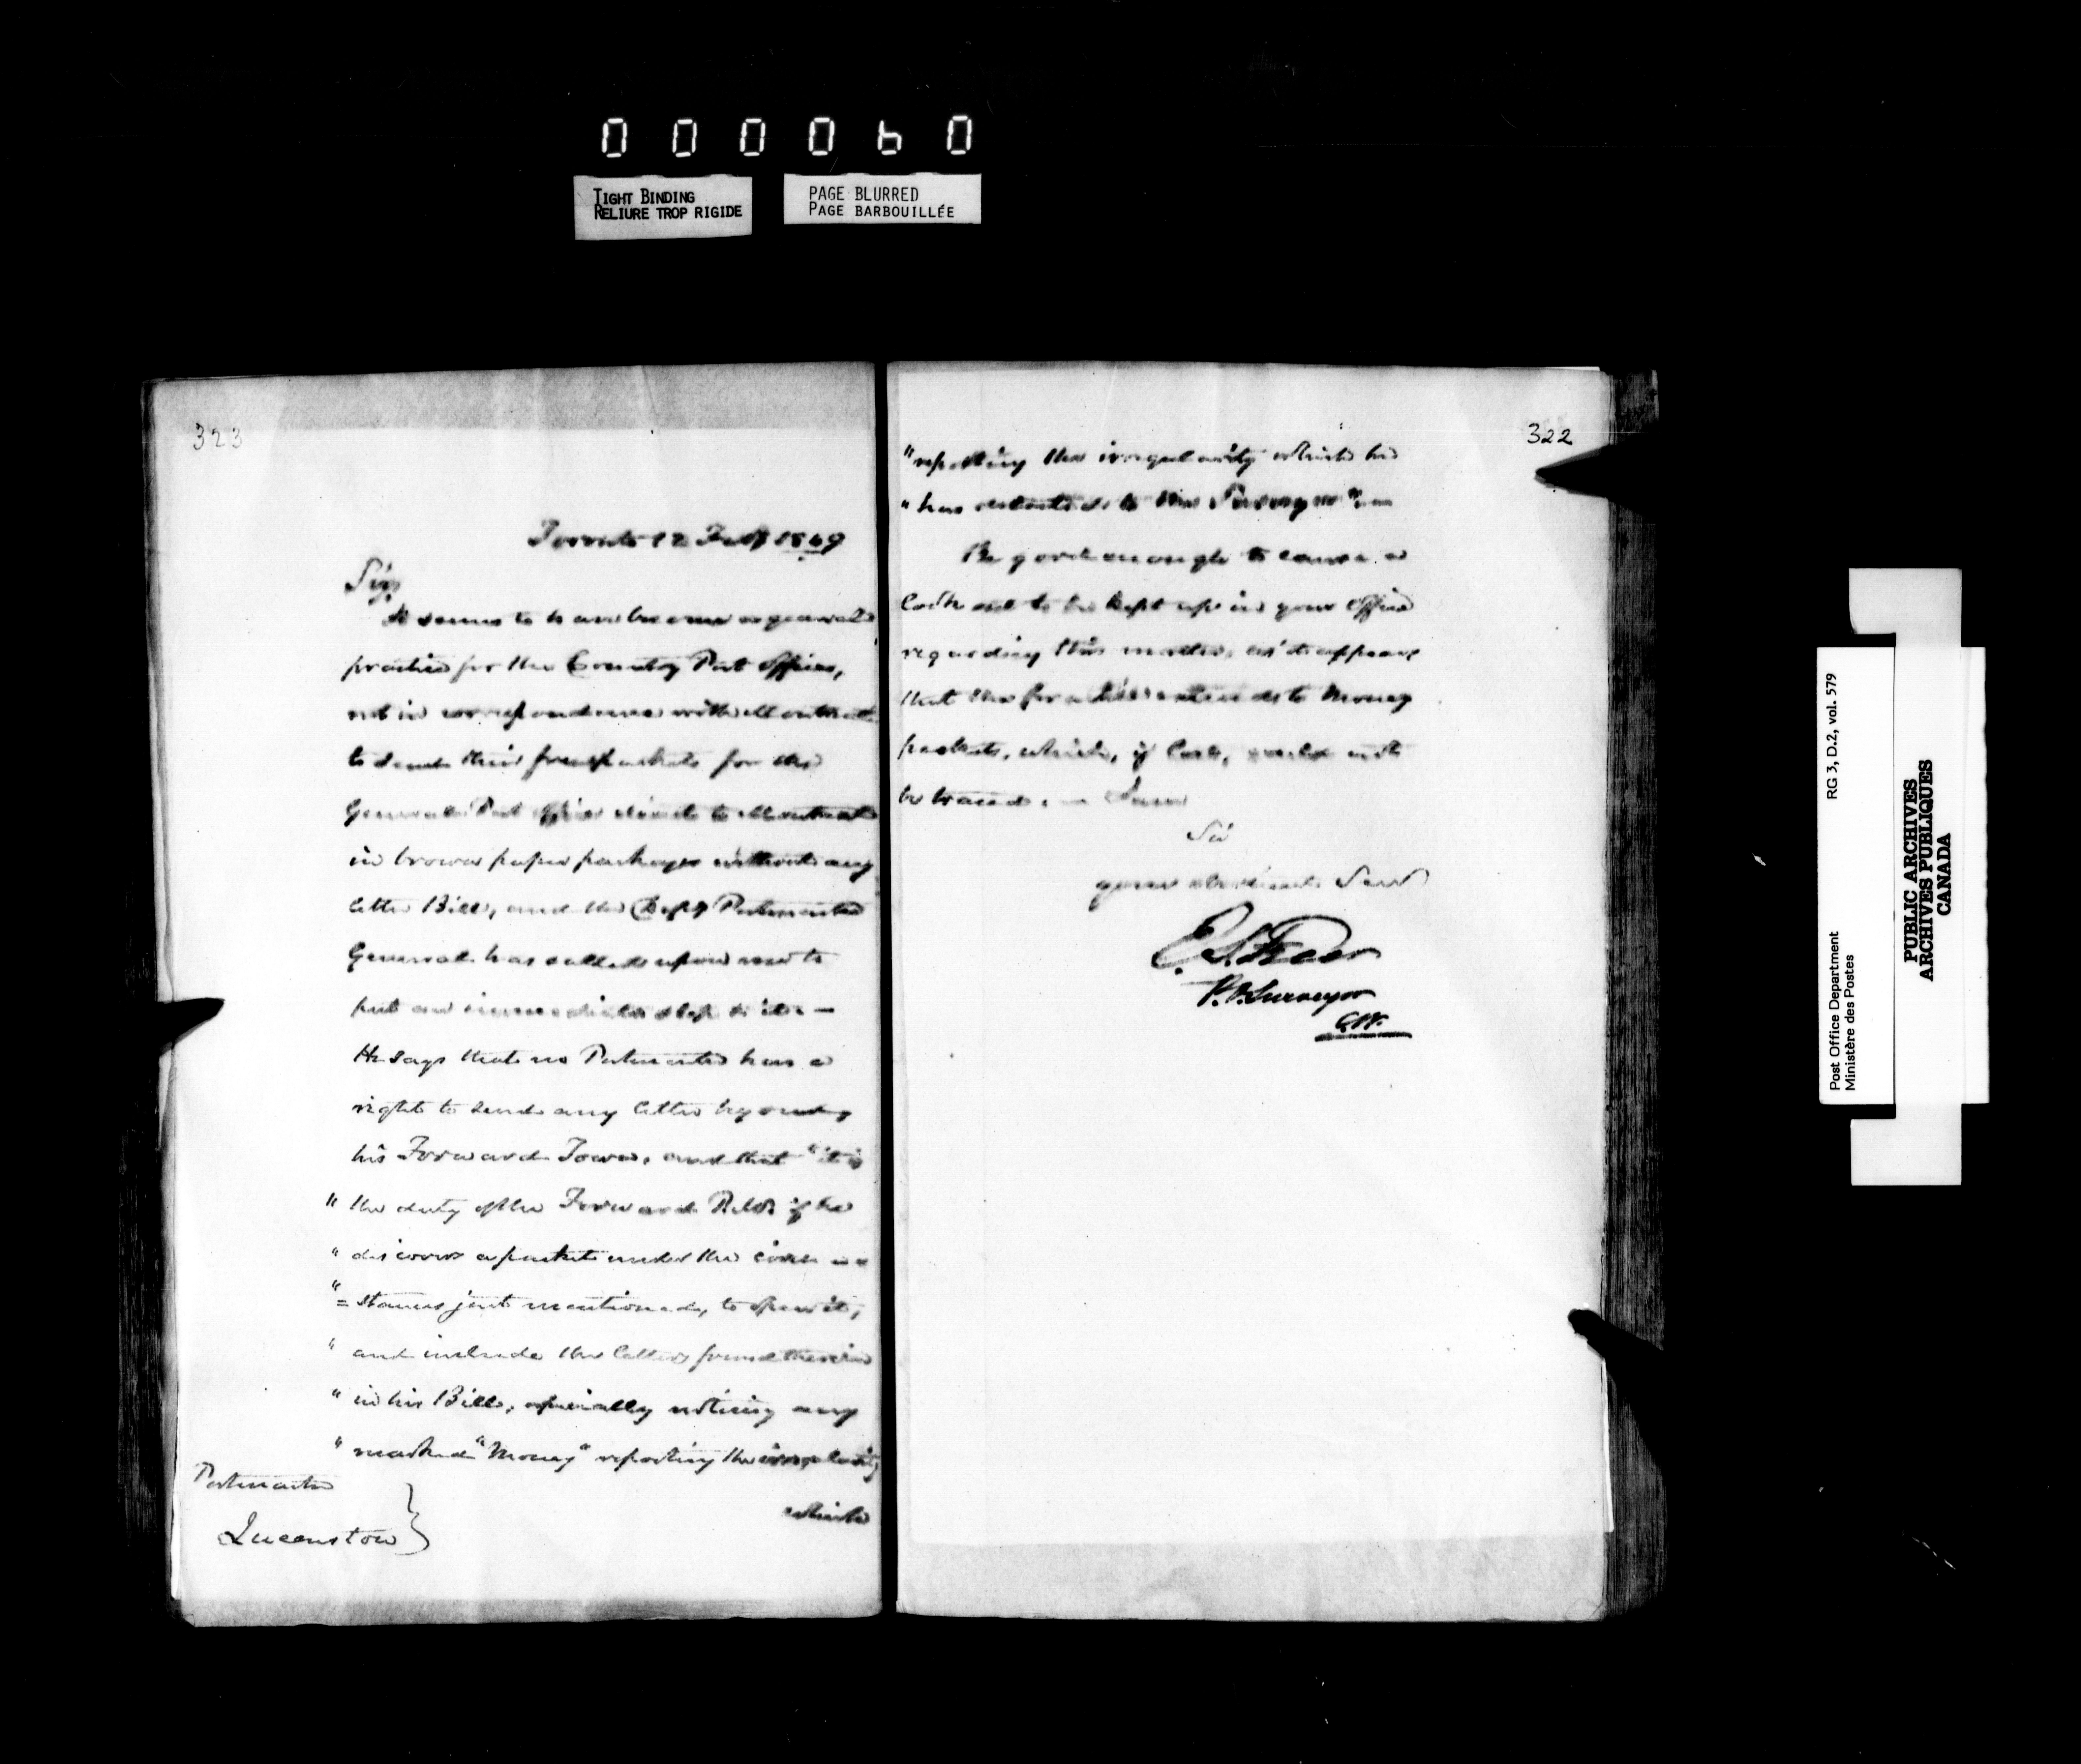 000060
TIGHT BINDING
RELIURE TROP RIGIDE
PAGE BLURRED
PAGE BARBOUILLÉE
323
Toronto 12 Feby 1849
Sir,
It seems to have become a general
practice for the Country Post Offices,
not in correspondence with Montreal
to send their packets for the
General Post Office direct to Montreal
in brown paper packages without any
letter Bill, and the Depy Postmaster
General has called upon me to
put an immediate stop to it. —
He says that no Postmaster has a
right to send any letter beyond
his Forward Town, and that "it is
" the duty of the Forward P.M. if he
" discovers a packet under the circum
"=stances just mentioned, to open it,
" and include the letters found therein
" in his Bill, specially noticing any
" marked "Money" reporting the irregularity
which
Postmaster
Queenston }
322
"reporting the irregularity which he
" has to the Surveyor" —
Be good enough to cause a
look out to be kept up in your Office
regarding this matter, as it appears
that the practice extends to Money
packets, which, if lost, could not
be traced. —
Sir
your obedient Servt
E. S. Freer
P. O. Surveyor
C.W.
Post Office Department
Ministère des Postes
RG 3, D.2, vol. 579
PUBLIC ARCHIVES
ARCHIVES PUBLIQUES
CANADA